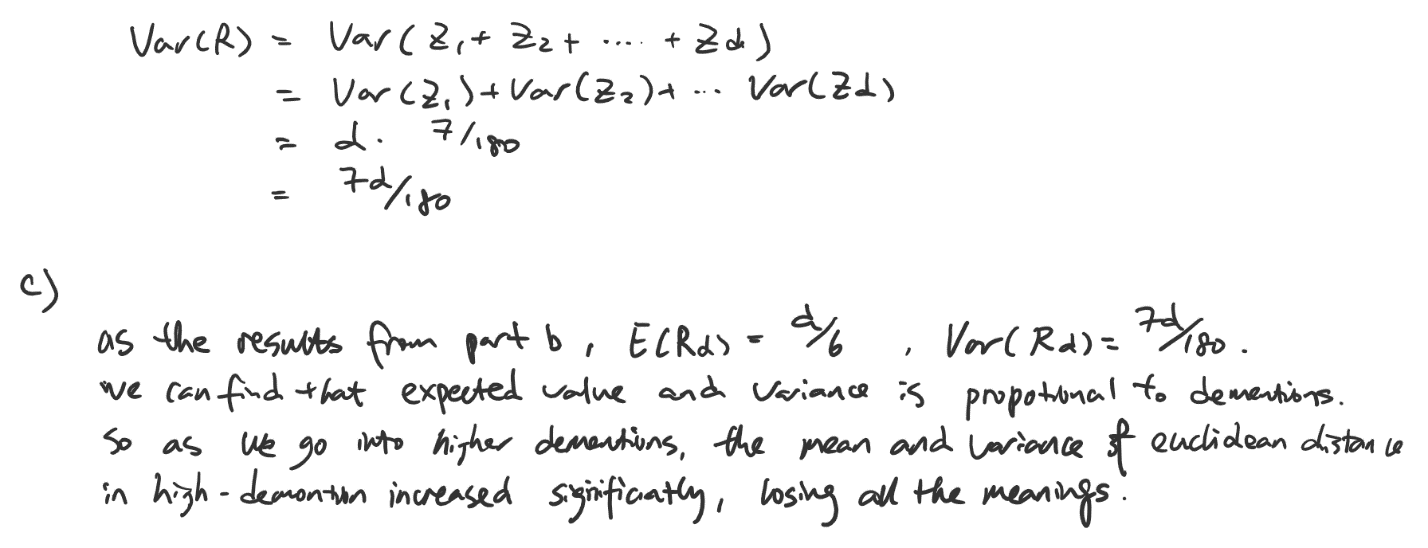 Var(R) = Var(Z₁ + Z₂ + .... + Zd)
= Var(Z₁) + Var(Z₂) + ... Var(Zd)
= d. 7/180
= 7d/180
c)
as the resubts from part b, E(Rd) = d/6 , Var(Rd) = 7d/180.
we can find that expected value and variance is propotional to dementions.
So as we go into higher dementions, the mean and variance of euclidean distance
in high-demontion increased siginificiatly, losing all the meanings.